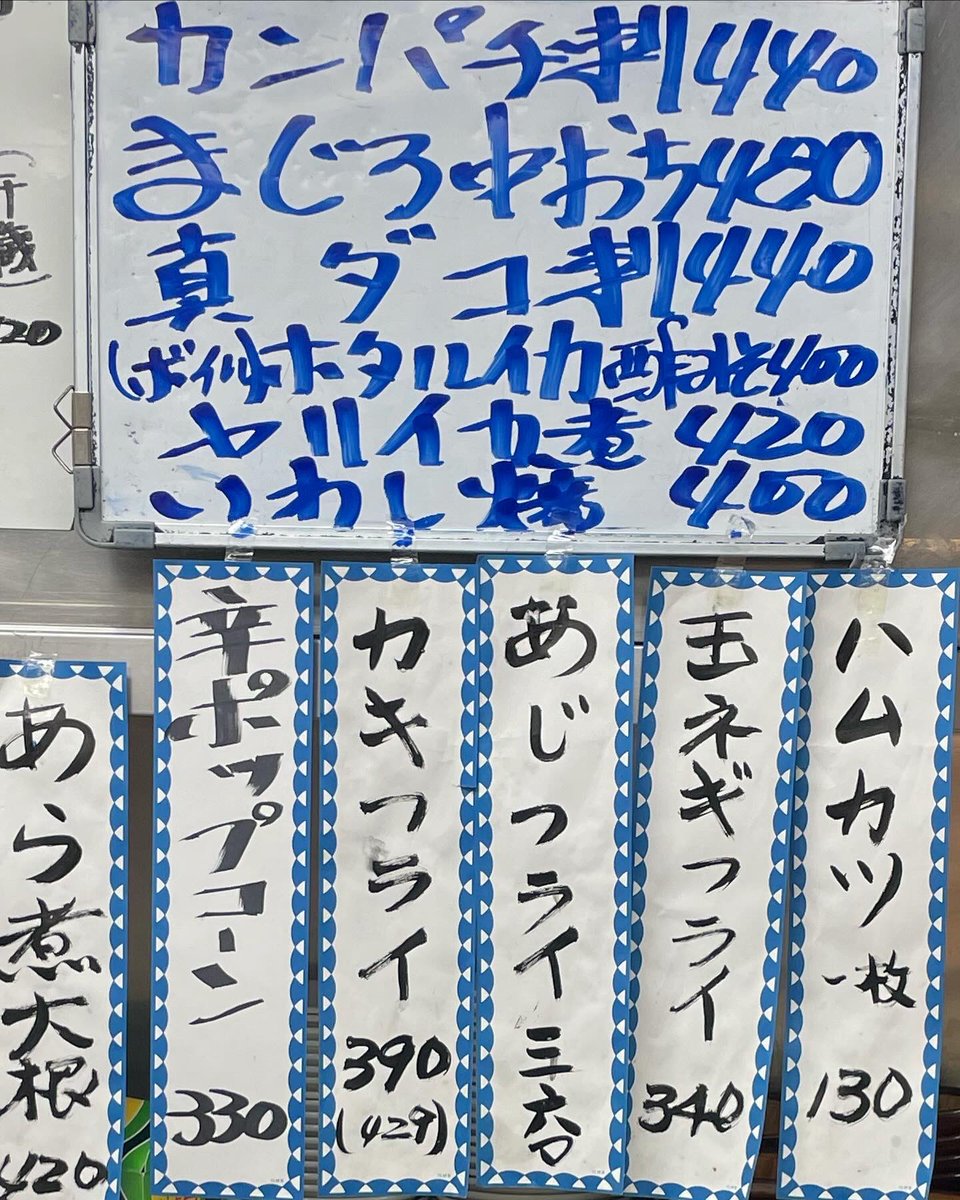 カンパチ刺440
まじろ中おち480
真ダコ刺440
(ボイル)ホタルイカ酢みそ400
ヤリイカ煮 420
いわし焼 400
ハムカツ 一枚 130
玉ネギフライ 340
あじフライ 三六〇
カキフライ 390
(429)
辛ポップコーン 330
あら煮大根 420
20